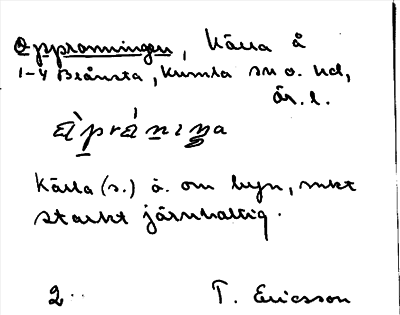 Opprannningen, Källa å
1-4 Brånsta, Kumla sn o. hd,
Är. l.
Källa (s.) å. om byn, mkt
starkt järnhaltig.
2.. T. Ericsson